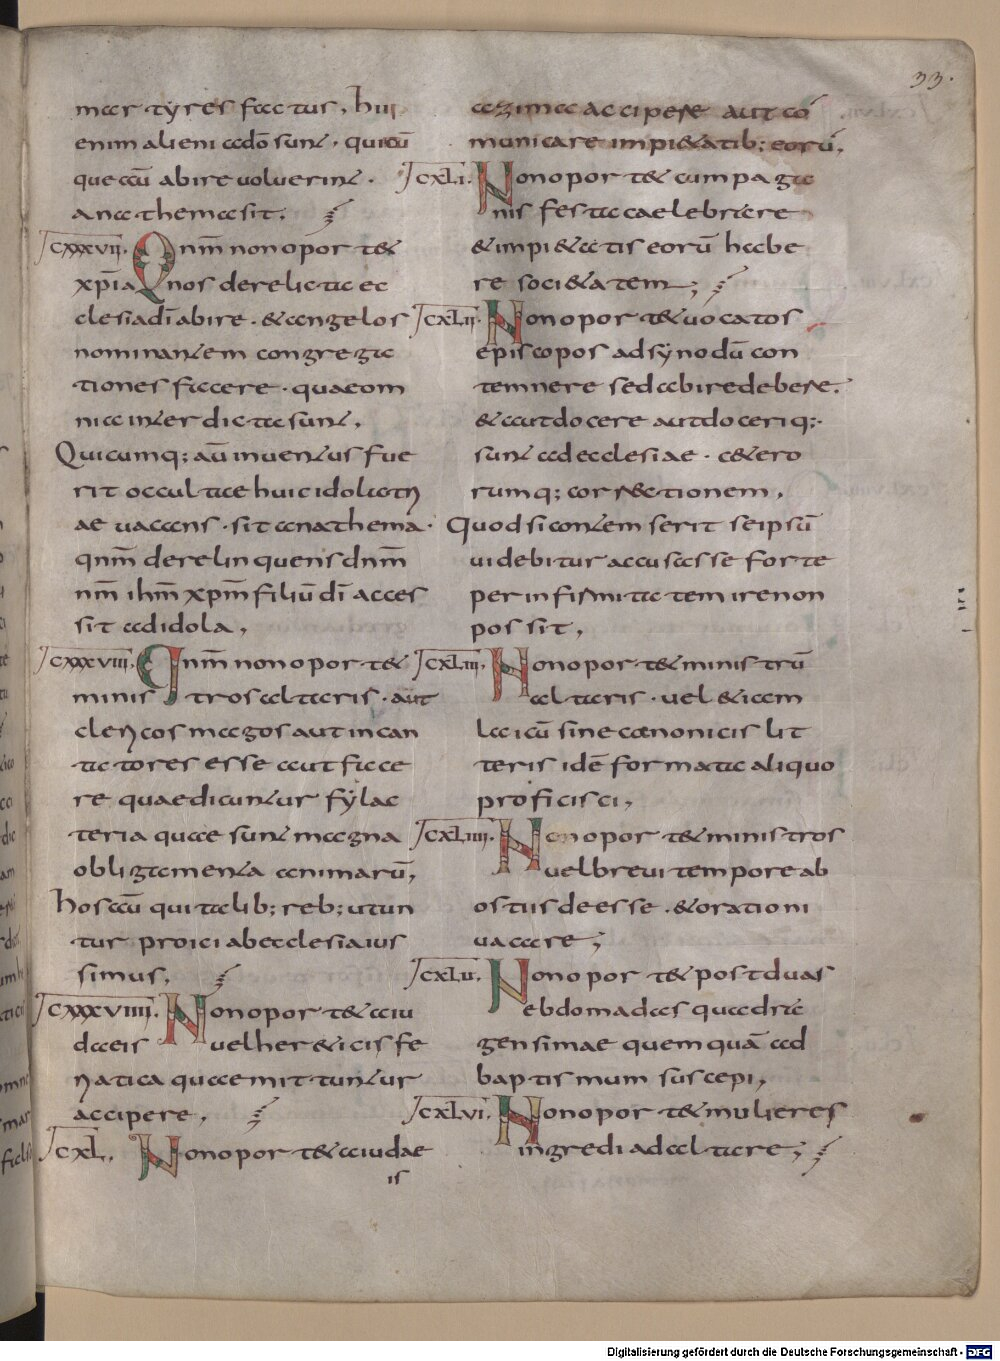 33.
martyres factus, hii
enim alieni a dō sunt · qui cū
que ad abire uoluerint ·
anathema sit,
CXXXVII. Qnm̄ non oportet
xp̄ianos derelicta ec
clesia dī abire · & angelos
nominantem congrega
tiones facere · quae om
nia interdicta sunt,
Quicumq; aū inuentus fue
rit occulta huic idolotri
ae uacans · sit anathema ·
qnm̄ derelinquens dn̄m
nm̄ ihm̄ xp̄m filiū dī acces
sit ad idola,
CXXXVIII. Qnm̄ non oportet
ministros altaris · aut
clericos magos aut incan
tatores esse aut face
re quae dicuntur fylac
teria quae sunt magna
obligamenta animarū,
hos aū qui talib; reb; utun
tur proici ab ecclesia ius
simus,
CXXXVIIII. Non oportet a iu
daeis uel hereticis fe
riatica quae mittuntur
accipere,
CXL. Non oportet a iudae
is
azima accipere aut cō
municare impietatib; eorū,
CXLI. Non oportet cum paga
nis festa caelebrare
& impietatis eorū habe
re sociaetatem;
CXLII. Non oportet uocatos
episcopos ad synodū con
temnere sed abire debere.
& aut docere aut doceri q;
sunt ad ecclesiae · cetero
rumq; correctionem,
Quod si contemserit se ipsū
uidebitur accusasse forte
per infirmitatem ire non
possit,
CXLIII. Non oportet ministrū
altaris · uel etiam
laicū sine canonicis lit
teris idē formata aliquo
proficisci,
CXLIIII. Non oportet ministros
uel breui tempore ab
ostiis deesse · & orationi
uacare;
CXLV. Non oportet post duas
ebdomadas quadra
gensimae quemquā ad
baptismum suscepi,
CXLVI. Non oportet mulieres
ingredi ad altare;
Digitalisierung gefördert durch die Deutsche Forschungsgemeinschaft - DFG